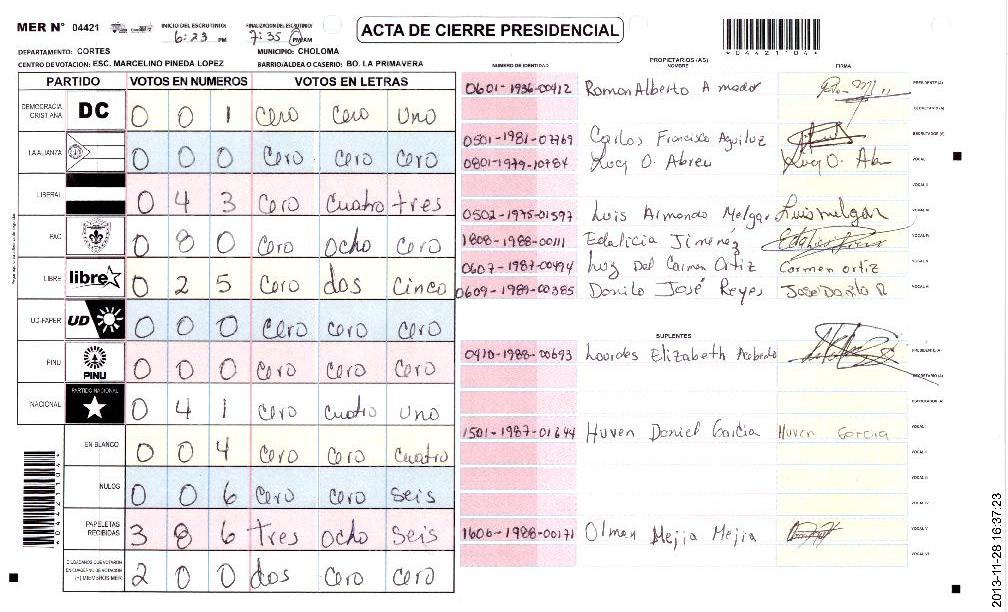 MER N° 04421
INICIO DEL ESCRUTINIO: 6:23 PM
FINALIZACION DEL ESCRUTINIO: 7:35 PM/AM
ACTA DE CIERRE PRESIDENCIAL
*04421104*
DEPARTAMENTO: CORTES
MUNICIPIO: CHOLOMA
CENTRO DE VOTACION: ESC. MARCELINO PINEDA LOPEZ
BARRIO/ALDEA O CASERIO: BO. LA PRIMAVERA
PARTIDO VOTOS EN NUMEROS VOTOS EN LETRAS
DEMOCRACIA CRISTIANA DC 0 0 1 Cero Cero Uno
LA ALIANZA 0 0 0 Cero Cero Cero
LIBERAL 0 4 3 Cero Cuatro tres
PAC 0 8 0 Cero Ocho Cero
LIBRE libre 0 2 5 Cero dos Cinco
UD-FAPER UD 0 0 0 Cero Cero Cero
PINU PINU 0 0 0 Cero Cero Cero
NACIONAL PARTIDO NACIONAL 0 4 1 Cero Cuatro Uno
EN BLANCO 0 0 4 Cero Cero Cuatro
NULOS 0 0 6 Cero Cero Seis
PAPELETAS RECIBIDAS 3 8 6 tres Ocho Seis
CIUDADANOS QUE VOTARON EN CUADERNO DE VOTACION (+) MIEMBROS MER 2 0 0 dos Cero Cero
PROPIETARIOS (AS)
NUMERO DE IDENTIDAD NOMBRE FIRMA
0601-1936-00412 Ramon Alberto Amador PRESIDENTE (A)
SECRETARIO (A)
0501-1981-07769 Carlos Francisco Aguiluz ESCRUTADOR (A)
0801-1979-10784 Lucy O. Abreu Lucy O. Ab VOCAL I
VOCAL II
0502-1975-01597 Luis Armando Melgar Luis melgar VOCAL III
1808-1988-00111 Edalicia Jimenez VOCAL IV
0607-1987-00494 Luz Del Carmen Ortiz Carmen ortiz VOCAL V
0609-1989-00385 Danilo José Reyes Jose Danilo R VOCAL VI
SUPLENTES
0410-1988-00693 Lourdes Elizabeth PRESIDENTE (A)
SECRETARIO (A)
ESCRUTADOR (A)
1501-1987-01644 Huven Daniel Garcia Huven Garcia VOCAL I
VOCAL II
VOCAL III
VOCAL IV
1606-1988-00171 Olman Mejia Mejia VOCAL V
VOCAL VI
*04421104*
2013-11-28 16:37:23